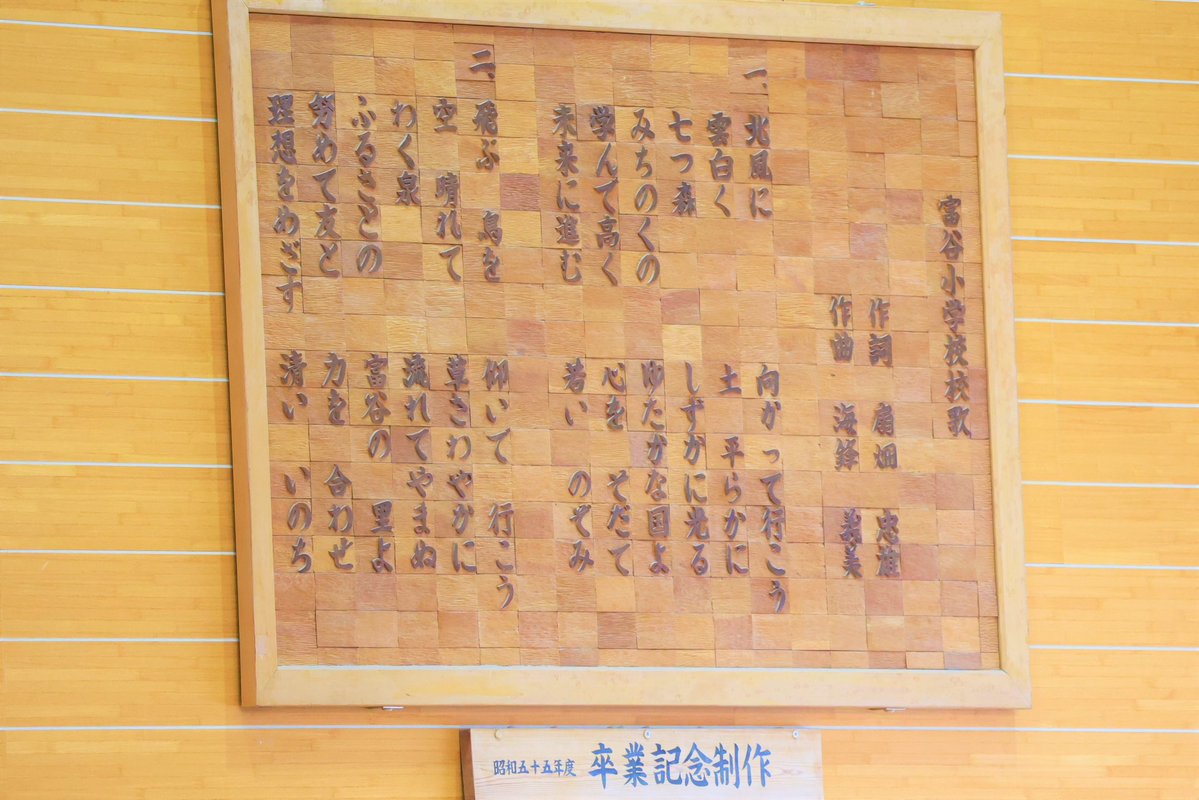 富谷小学校校歌
作詞 扇畑 忠雄
作曲 海鋒 義美
一、北風に 向かって行こう
雲白く 土 平らかに
七つ森 しずかに光る
みちのくの ゆたかな国よ
学んで高く 心を そだて
未来に進む 若い のぞみ
二、飛ぶ 鳥を 仰いで 行こう
空 晴れて 草さわやかに
わく泉 流れてやまぬ
ふるさとの 富谷の 里よ
努めて友と 力を 合わせ
理想をめざす 清い いのち
昭和五十五年度 卒業記念制作